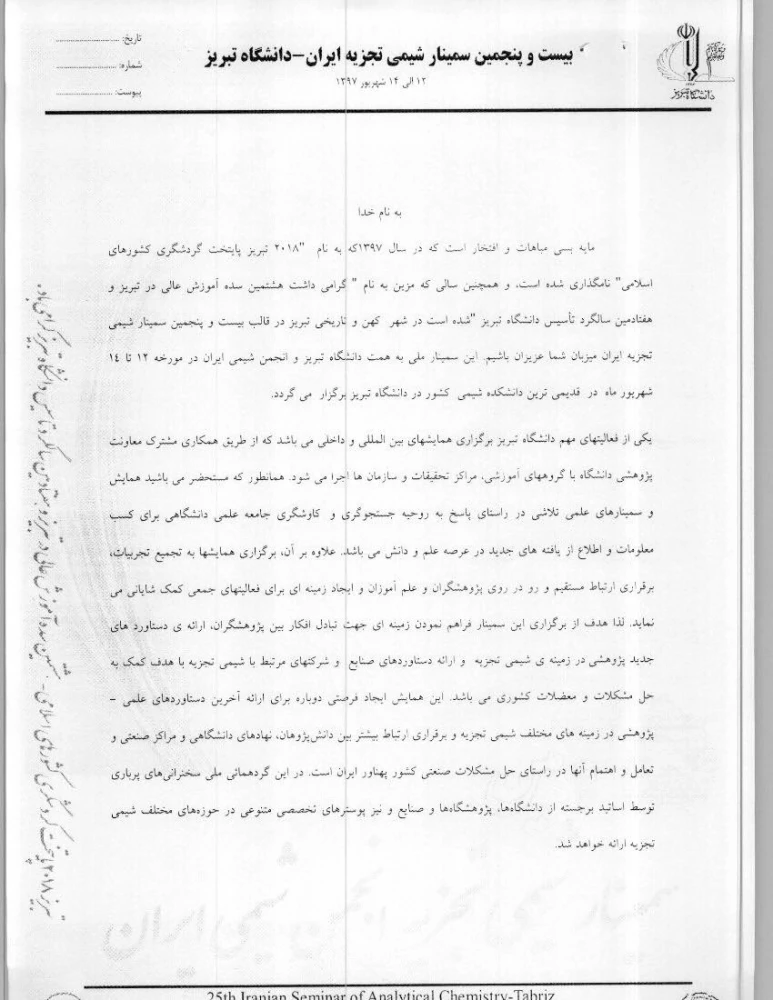 بیست و پنجمین سمینار شیمی تجزیه ایران-دانشگاه تبریز
۱۲ الی ۱۴ شهریور ۱۳۹۷
تاریخ:
شماره:
پیوست:
دانشگاه تبریز
به نام خدا
مایه بسی مباهات و افتخار است که در سال ۱۳۹۷که به نام "۲۰۱۸ تبریز پایتخت گردشگری کشورهای
اسلامی" نامگذاری شده است. و همچنین سالی که مزین به نام " گرامی داشت هشتمین سده آموزش عالی در تبریز و
هفتادمین سالگرد تأسیس دانشگاه تبریز "شده است در شهر کهن و تاریخی تبریز در قالب بیست و پنجمین سمینار شیمی
تجزیه ایران میزبان شما عزیزان باشیم. این سمینار ملی به همت دانشگاه تبریز و انجمن شیمی ایران در مورخه ۱۲ تا ۱٤
شهریور ماه در قدیمی ترین دانشکده شیمی کشور در دانشگاه تبریز برگزار می گردد.
یکی از فعالیتهای مهم دانشگاه تبریز برگزاری همایشهای بین المللی و داخلی می باشد که از طریق همکاری مشترک معاونت
پژوهشی دانشگاه با گروههای آموزشی، مراکز تحقیقات و سازمان ها اجرا می شود. همانطور که مستحضر می باشید همایش
و سمینارهای علمی تلاشی در راستای پاسخ به روحیه جستجوگری و کاوشگری جامعه علمی دانشگاهی برای کسب
معلومات و اطلاع از یافته های جدید در عرصه علم و دانش می باشد. علاوه بر آن، برگزاری همایشها به تجمیع تجربیات،
برقراری ارتباط مستقیم و رو در روی پژوهشگران و علم آموزان و ایجاد زمینه ای برای فعالیتهای جمعی کمک شایانی می
نماید. لذا هدف از برگزاری این سمینار فراهم نمودن زمینه ای جهت تبادل افکار بین پژوهشگران، ارائه ی دستاورد های
جدید پژوهشی در زمینه ی شیمی تجزیه و ارائه دستاوردهای صنایع و شرکتهای مرتبط با شیمی تجزیه با هدف کمک به
حل مشکلات و معضلات کشوری می باشد. این همایش ایجاد فرصتی دوباره برای ارائه آخرین دستاوردهای علمی -
پژوهشی در زمینه های مختلف شیمی تجزیه و برقراری ارتباط بیشتر بین دانش‌پژوهان، نهادهای دانشگاهی و مراکز صنعتی و
تعامل و اهتمام آنها در راستای حل مشکلات صنعتی کشور پهناور ایران است. در این گردهمائی ملی سخنرانی‌های پرباری
توسط اساتید برجسته از دانشگاه‌ها، پژوهشگاه‌ها و صنایع و نیز پوسترهای تخصصی متنوعی در حوزه‌های مختلف شیمی
تجزیه ارائه خواهد شد.
تبریز ۲۰۱۸ پایتخت گردشگری کشورهای اسلامی - هشتمین سده آموزش عالی در تبریز و هفتادمین سالگرد تأسیس دانشگاه تبریز گرامی باد.
سمینار شیمی تجزیه انجمن شیمی ایران
25th Iranian Seminar of Analytical Chemistry-Tabriz